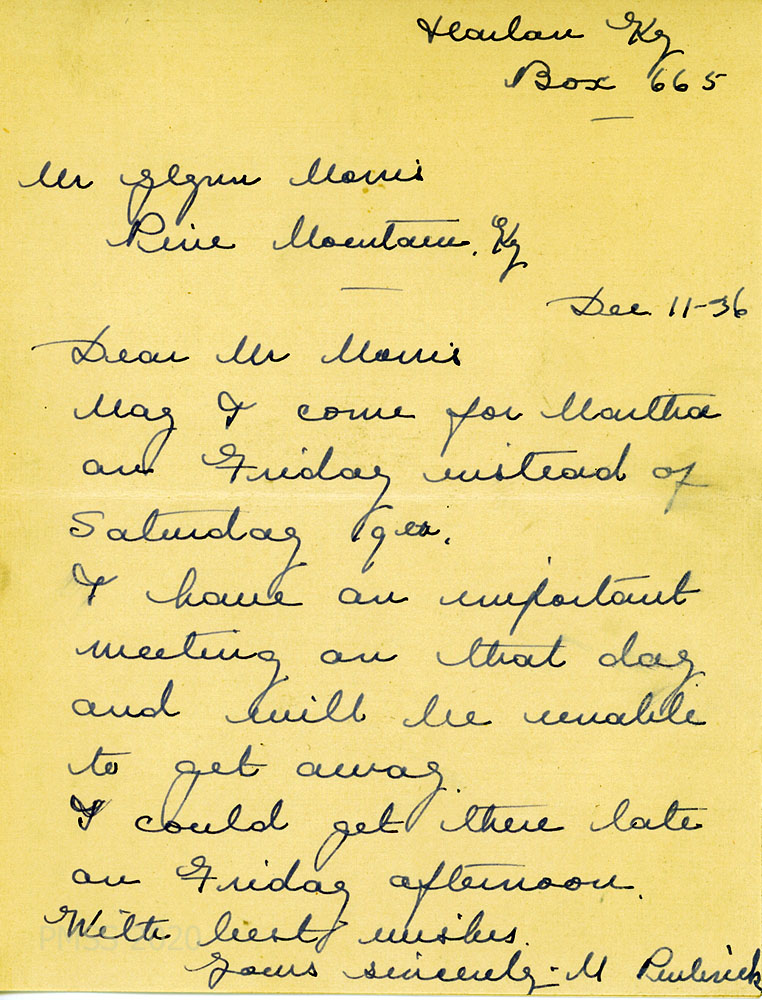 Harlan Ky
Box 665
Mr Glynn Morris
Pine Mountain, Ky
Dec 11-36
Dear Mr Morris
May I come for Martha
on Friday instead of
Saturday 19th.
I have an important
meeting on that day
and will be unable
to get away.
I could get there late
on Friday afternoon.
With best wishes.
Yours sincerely - M